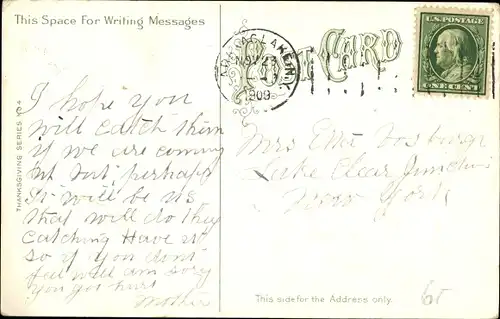 This Space For Writing Messages
POST CARD
NOV 23
1909
U.S. POSTAGE
ONE CENT
THANKSGIVING SERIES NO 4
I hope you
will catch them
if we are coming
but perhaps
It will be us
that will do the
catching Have it
so if you dont
feel well am sory
you got hurt
Mother
Mrs Etta Vosburgh
Lake Clear Junction
New York
This side for the Address only.